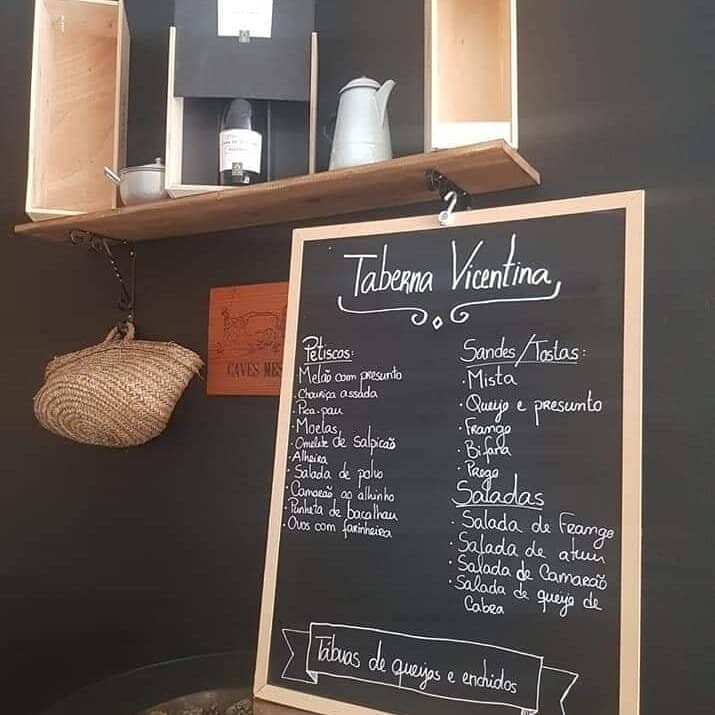 Taberna Vicentina
Petiscos:
· Melão com presunto
· Chouriça assada
· Pica-pau
· Moelas
· Omelete de salpicão
· Alheira
· Salada de polvo
· Camarão ao alhinho
· Punheta de bacalhau
· Ovos com farinheira
Sandes/Tostas:
· Mista
· Queijo e presunto
· Frango
· Bifana
· Prego
Saladas
· Salada de Frango
· Salada de atum
· Salada de Camarão
· Salada de queijo de
Cabra
Tábuas de queijos e enchidos
CAVES